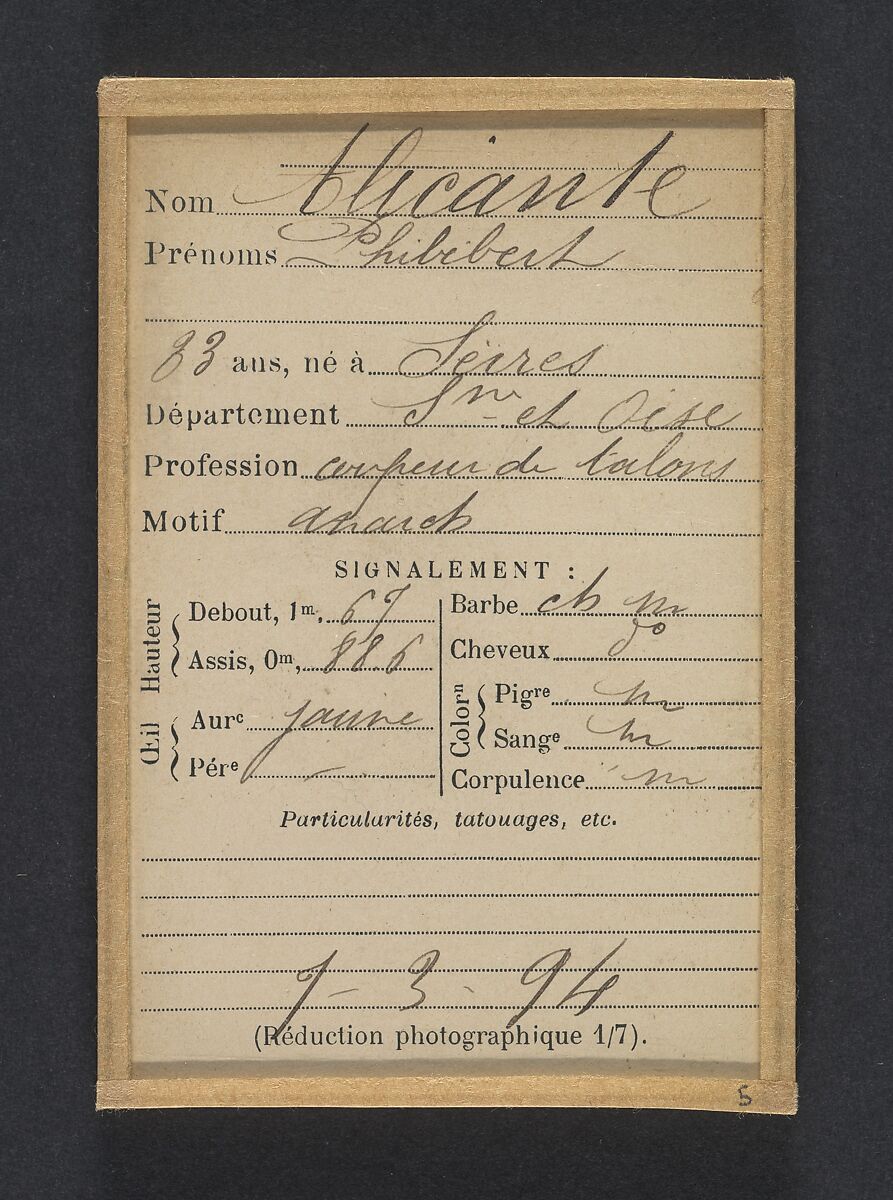 Nom Alicante
Prénoms Philibert
23 ans, né à Sèvres
Département Sne et Oise
Profession coupeur de talons
Motif anarch
SIGNALEMENT :
Hauteur
Debout, 1m, 67
Assis, 0m, 886
Œil
Aurc jaune
Pére —
Barbe ch m
Cheveux do
Colorn
Pigre m
Sange m
Corpulence m
Particularités, tatouages, etc.
7 - 3 - 94
(Réduction photographique 1/7).
5